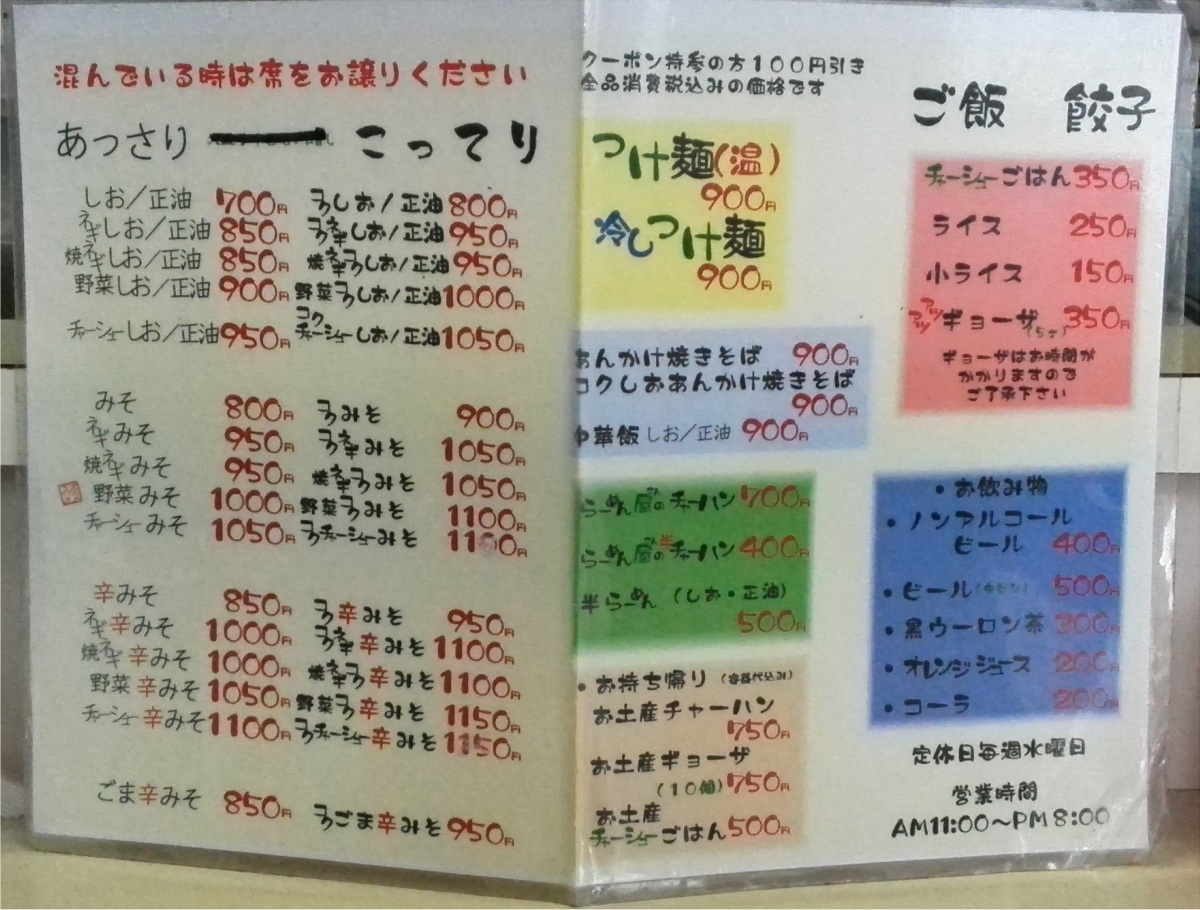 混んでいる時は席をお譲りください
あっさり こってり
しお／正油 700円 コクしお/正油 800円
ネギしお／正油 850円 コクネギしお/正油 950円
焼ネギしお／正油 850円 焼ネギコクしお/正油 950円
野菜しお／正油 900円 野菜コクしお/正油 1000円
チャーシューしお／正油 950円 コクチャーシューしお/正油 1050円
みそ 800円 コクみそ 900円
ネギみそ 950円 コクネギみそ 1050円
焼ネギみそ 950円 焼ネギコクみそ 1050円
野菜みそ 1000円 野菜コクみそ 1100円
チャーシューみそ 1050円 コクチャーシューみそ
辛みそ 850円 コク辛みそ 950円
ネギ辛みそ 1000円 コクネギ辛みそ 1100円
焼ネギ辛みそ 1000円 焼ネギコク辛みそ 1100円
野菜辛みそ 1050円 野菜コク辛みそ 1150円
チャーシュー辛みそ 1100円 コクチャーシュー辛みそ 1150円
ごま辛みそ 850円 コクごま辛みそ 950円
クーポン持参の方１００円引き
全品消費税込みの価格です
つけ麺(温)
900円
冷しつけ麺
900円
あんかけ焼きそば 900円
コクしおあんかけ焼きそば
900円
中華飯 しお／正油 900円
らーめん屋さんのチャーハン 700円
らーめん屋さんの半チャーハン 400円
半らーめん（しお・正油）
500円
・お持ち帰り（容器代込み）
お土産チャーハン
750円
お土産ギョーザ
（１０個）750円
お土産
チャーシューごはん 500円
ご飯 餃子
チャーシューごはん 350円
ライス 250円
小ライス 150円
アツアツギョーザ(5ヶ) 350円
ギョーザはお時間が
かかりますので
ご了承下さい
・お飲み物
・ノンアルコール
ビール 400円
・ビール(中ビン) 500円
・黒ウーロン茶 300円
・オレンジジュース 200円
・コーラ 200円
定休日毎週水曜日
営業時間
AM11:00～PM8:00